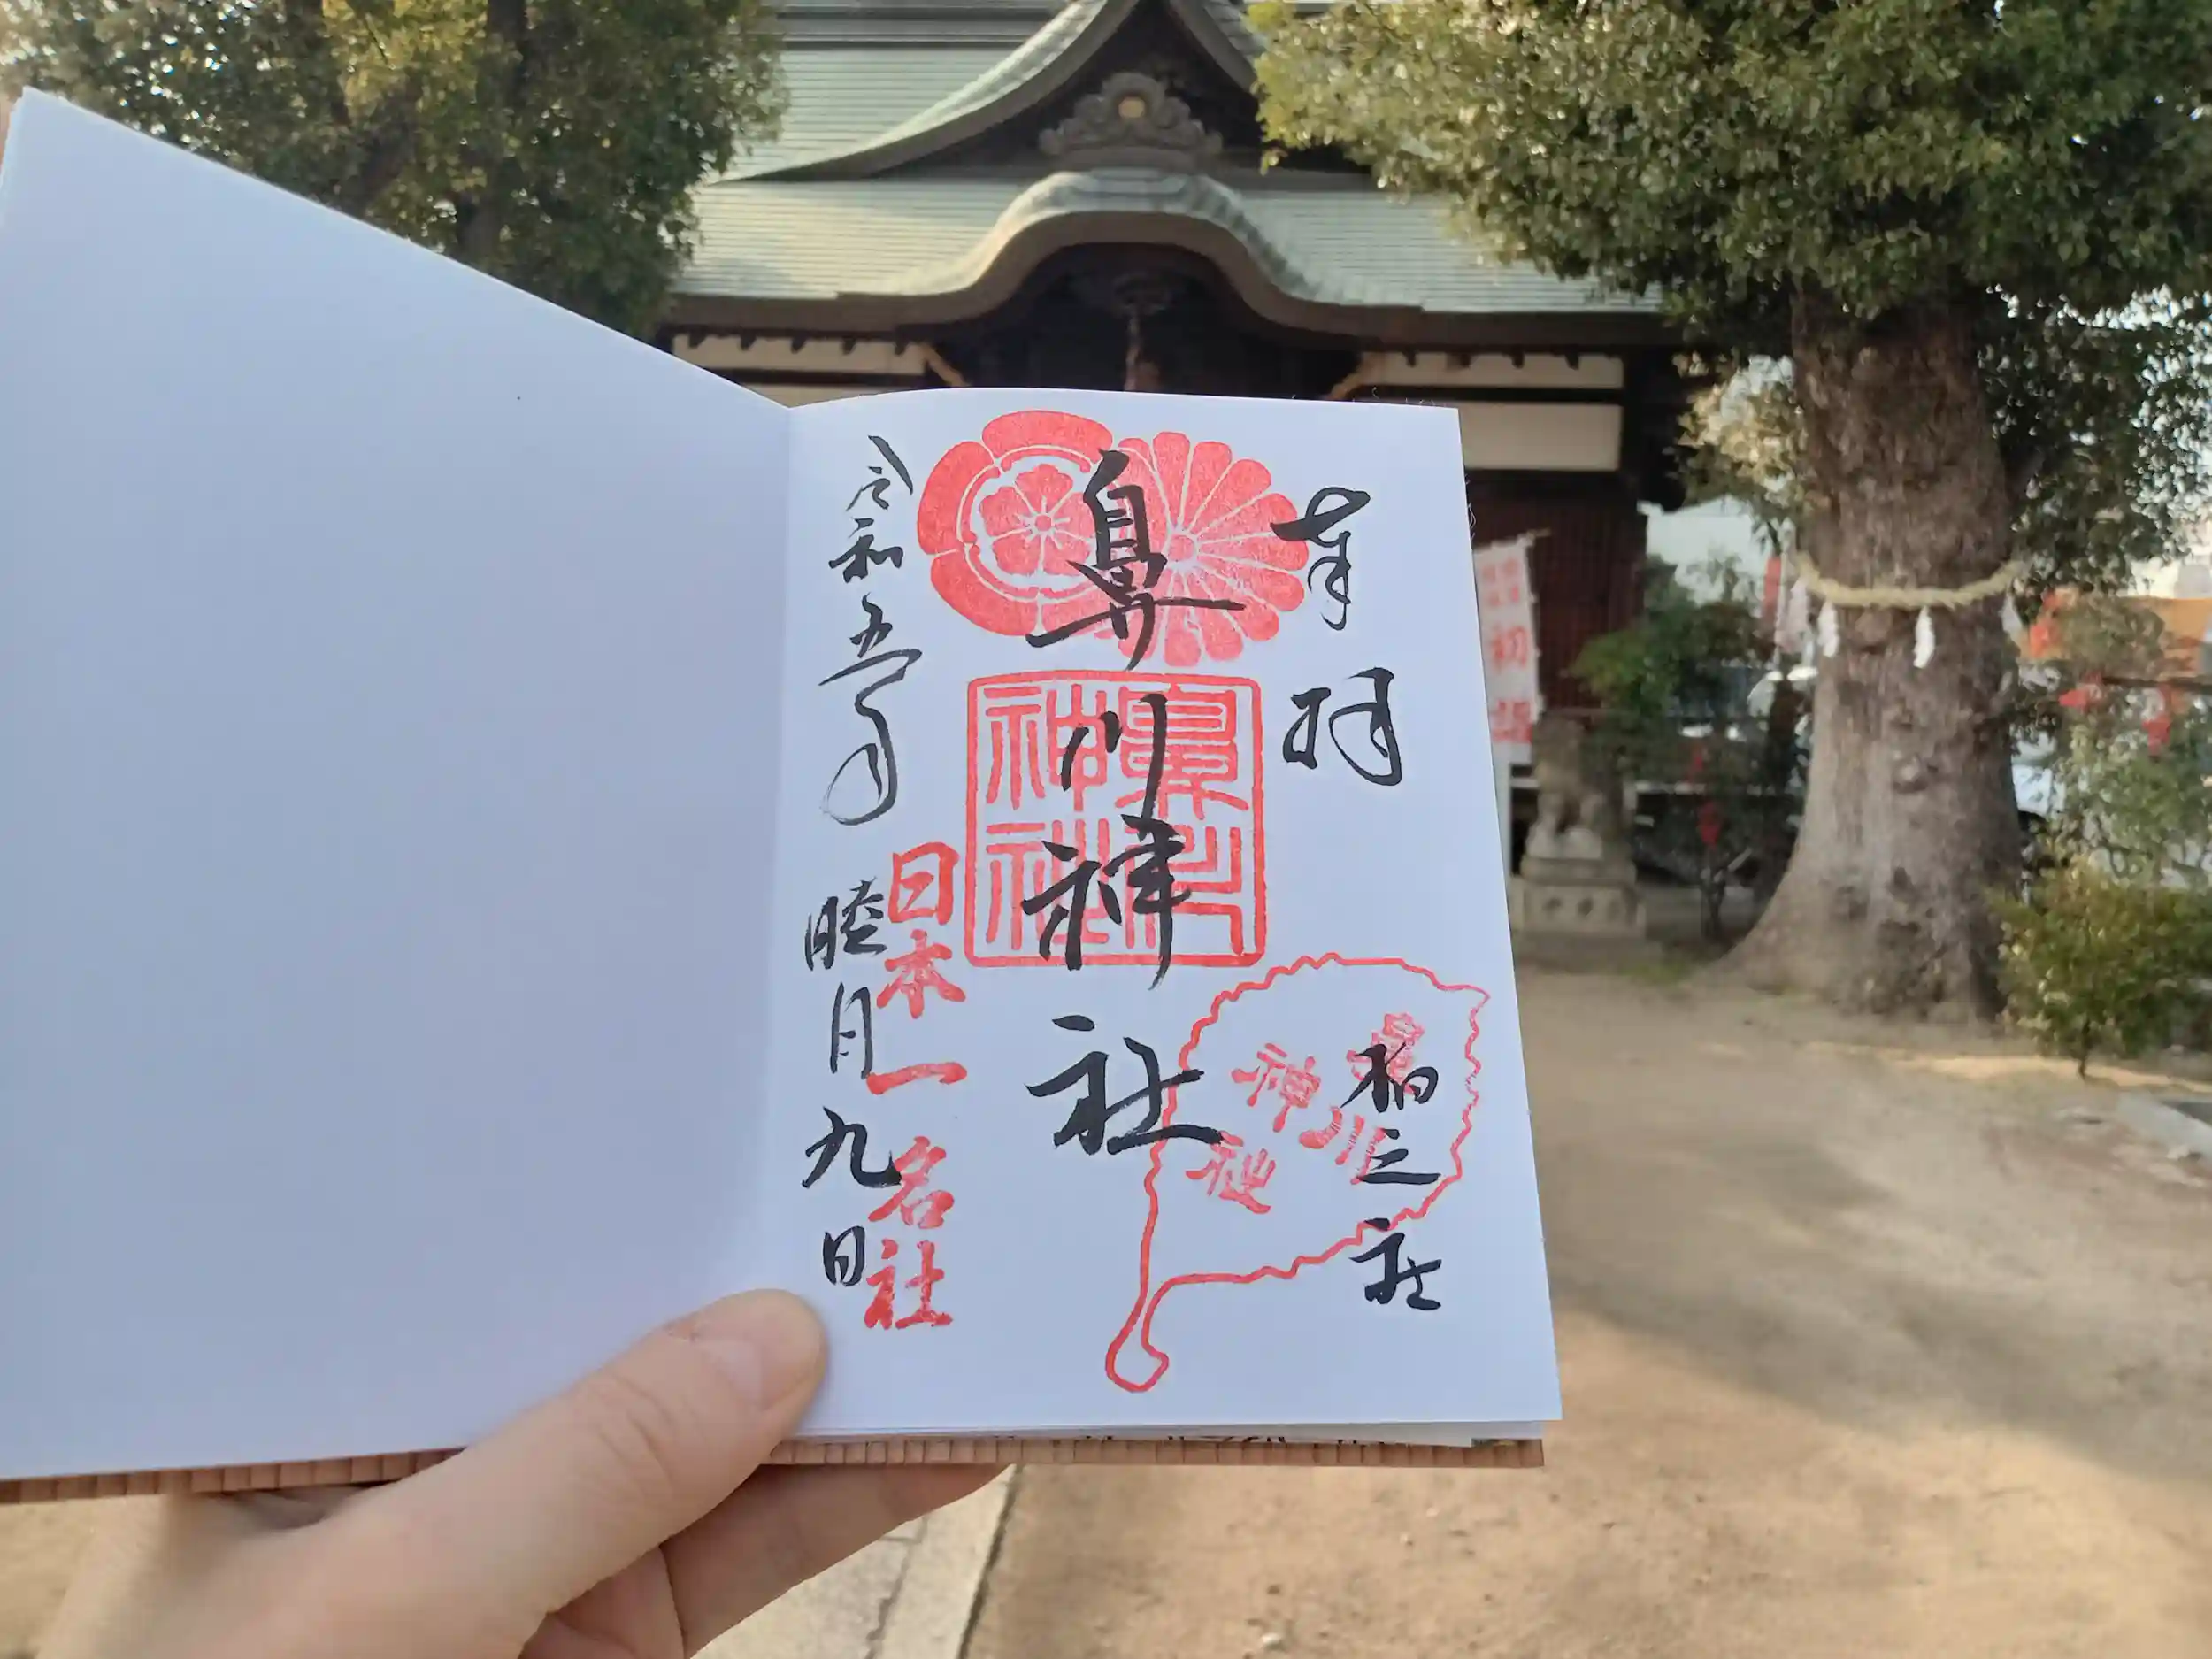 奉拝
柏之社
鼻川
神社
鼻川神社
鼻川
神社
日本一名社
令和五年 睦月九日
初詣